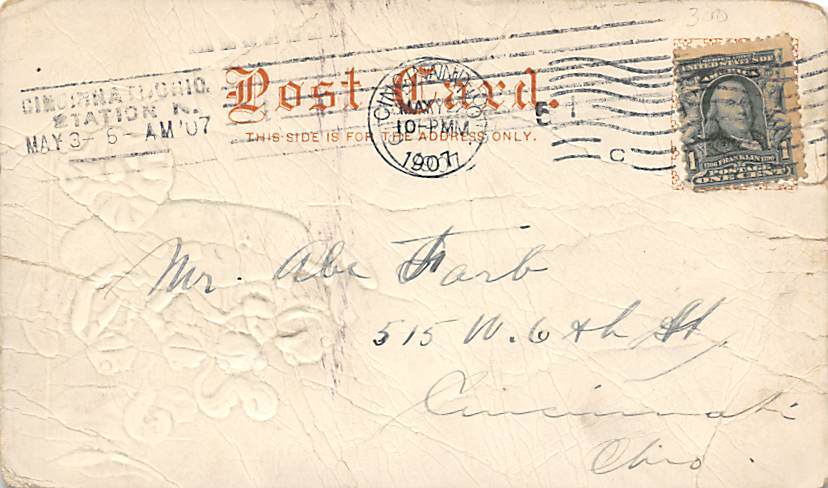 3 CDS
CINCINNATI, OHIO.
STATION N.
MAY 3- 5-AM '07
Post Card.
THIS SIDE IS FOR THE ADDRESS ONLY.
CINCINNATI
MAY
10-PM
1907
C
UNITED STATES OF
AMERICA
1 FRANKLIN 1
POSTAGE
ONE CENT
Mr. Abe Farb
515 W. 6th St,
Cincinnati
Ohio.